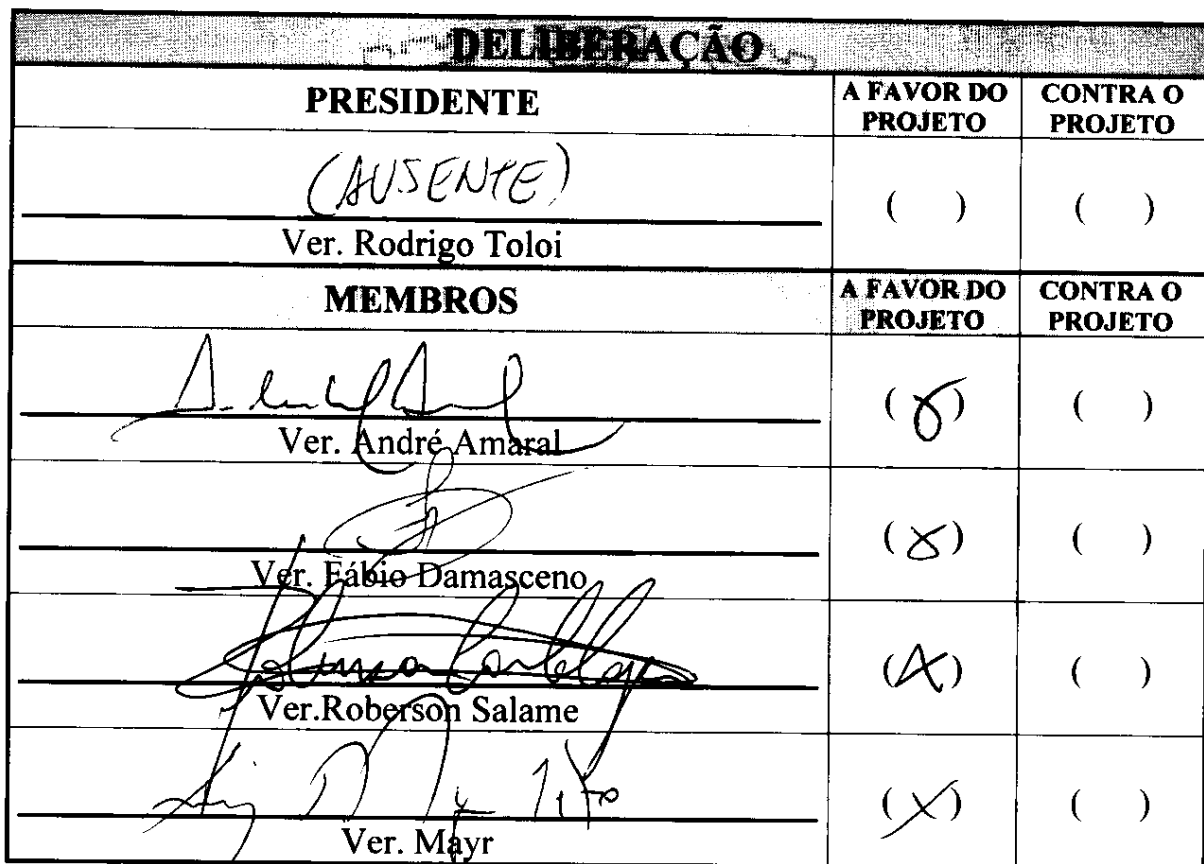 DELIBERAÇÃO
PRESIDENTE A FAVOR DO PROJETO CONTRA O PROJETO
(AUSENTE) ( ) ( )
Ver. Rodrigo Toloi
MEMBROS A FAVOR DO PROJETO CONTRA O PROJETO
(X) ( )
Ver. André Amaral
(X) ( )
Ver. Fábio Damasceno
(X) ( )
Ver.Roberson Salame
(X) ( )
Ver. Mayr